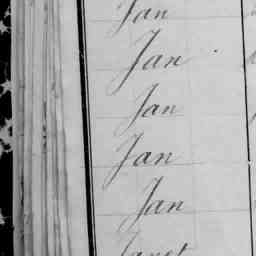 Jan
Jan
Jan
Jan
Jan